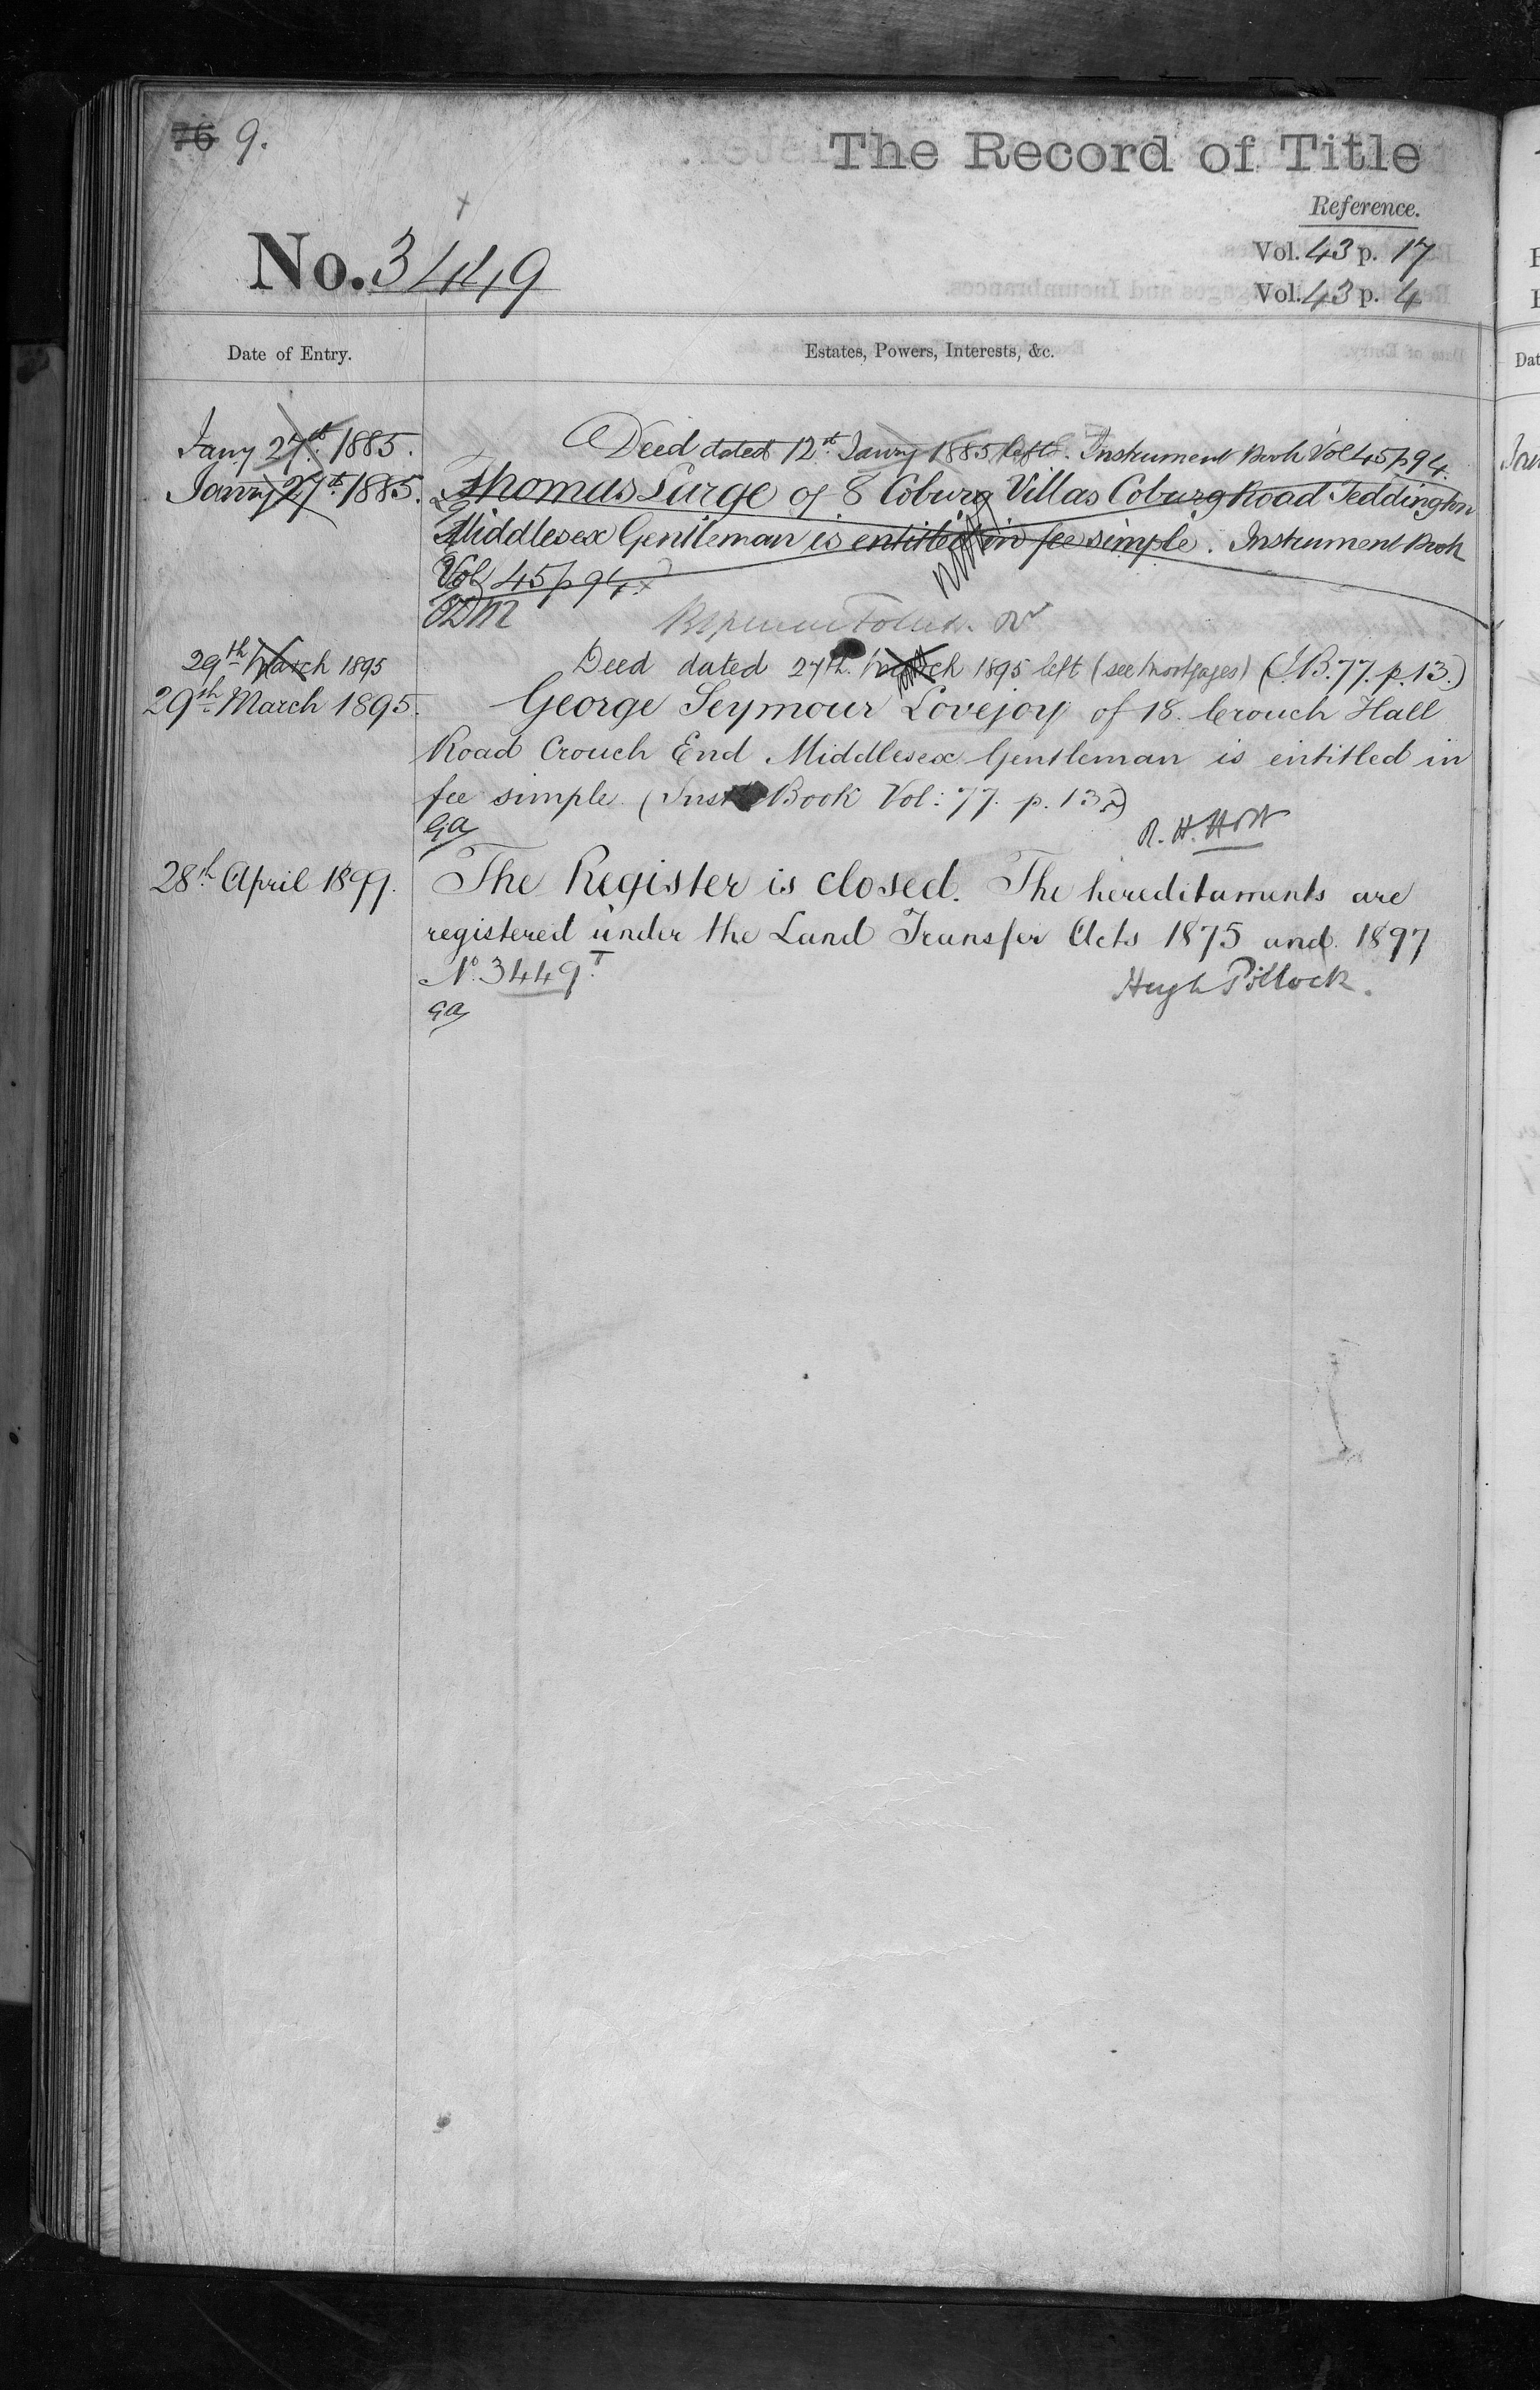 76 9.
The Record of Title
Reference.
No. 3449
Vol. 43 p. 17
Vol. 43 p. 4
Date of Entry.
Estates, Powers, Interests, &c.
Jany 27th 1885. Deed dated 12th Janry 1885 left. Instrument Book Vol 45 p 94.
Janry 27th 1885. Thomas Large of 8 Coburg Villas Coburg Road Teddington
Middlesex Gentleman is entitled in fee simple. Instrument Book
Vol 45 p 94.
29th March 1895 Deed dated 27th March 1895 left (see Mortgages) (I.B. 77. p. 13.)
29th March 1895. George Seymour Lovejoy of 18. Crouch Hall
Road Crouch End Middlesex Gentleman is entitled in
fee simple (Inst Book Vol: 77. p. 13.)
GA
R. H. Holt
28th April 1899. The Register is closed. The hereditaments are
registered under the Land Transfer Acts 1875 and 1897
No. 3449T.
Hugh Pollock.
GA